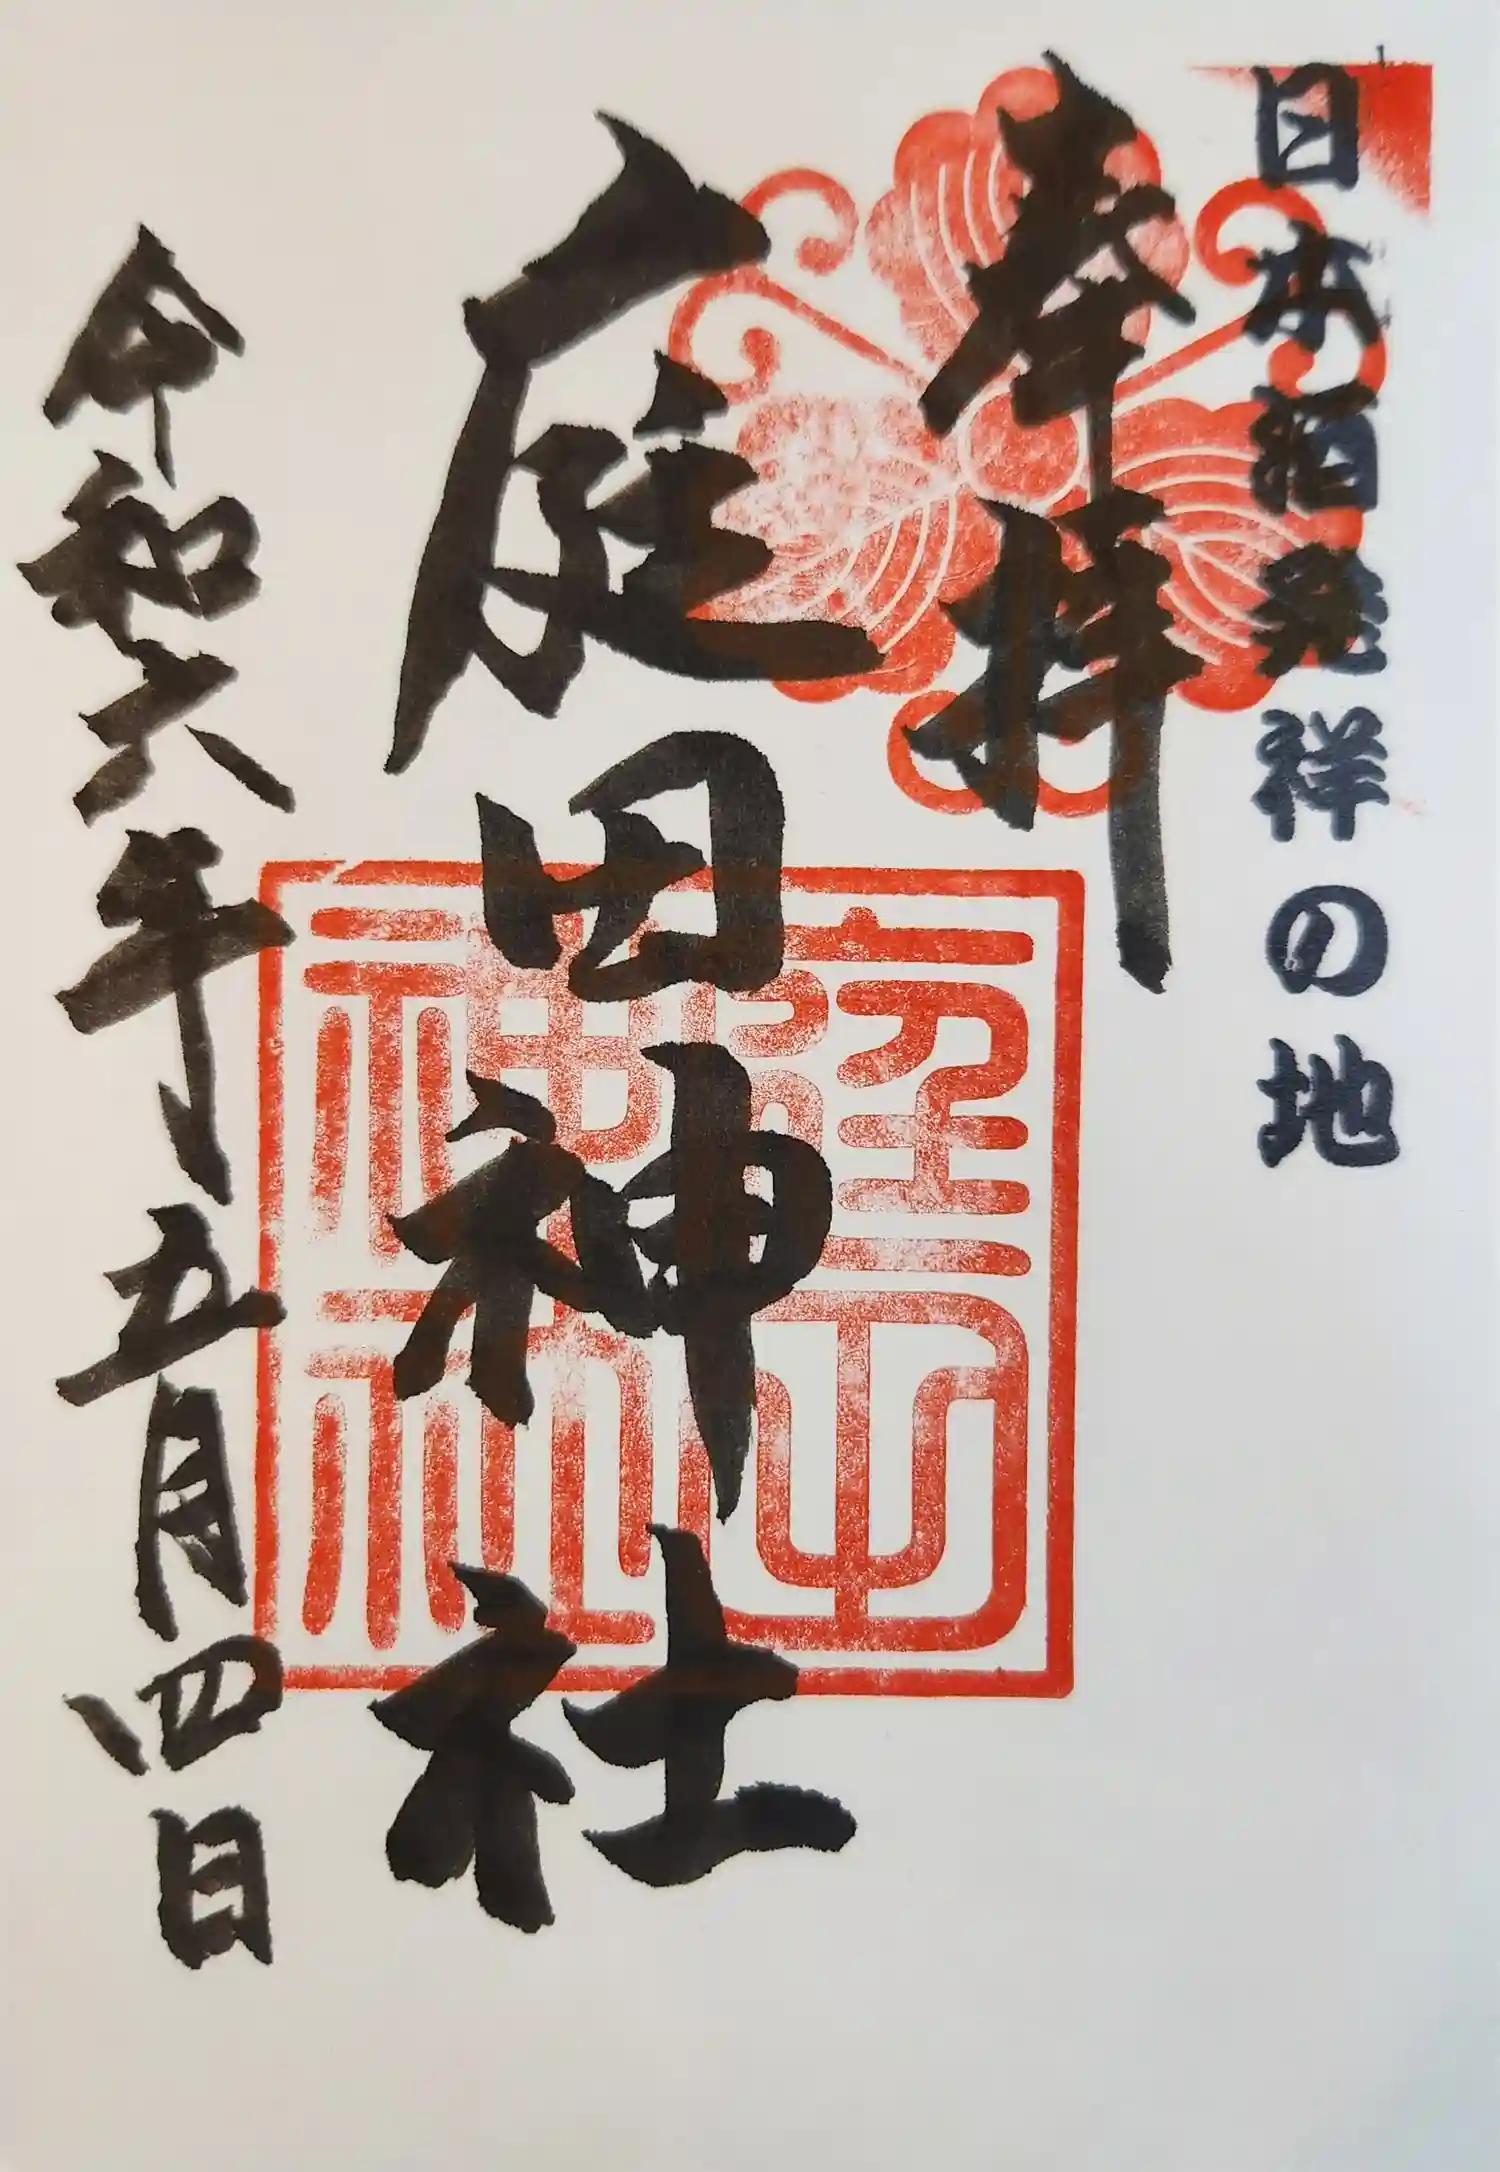 日本酒発祥の地
奉拝
庭田神社
令和六年五月四日